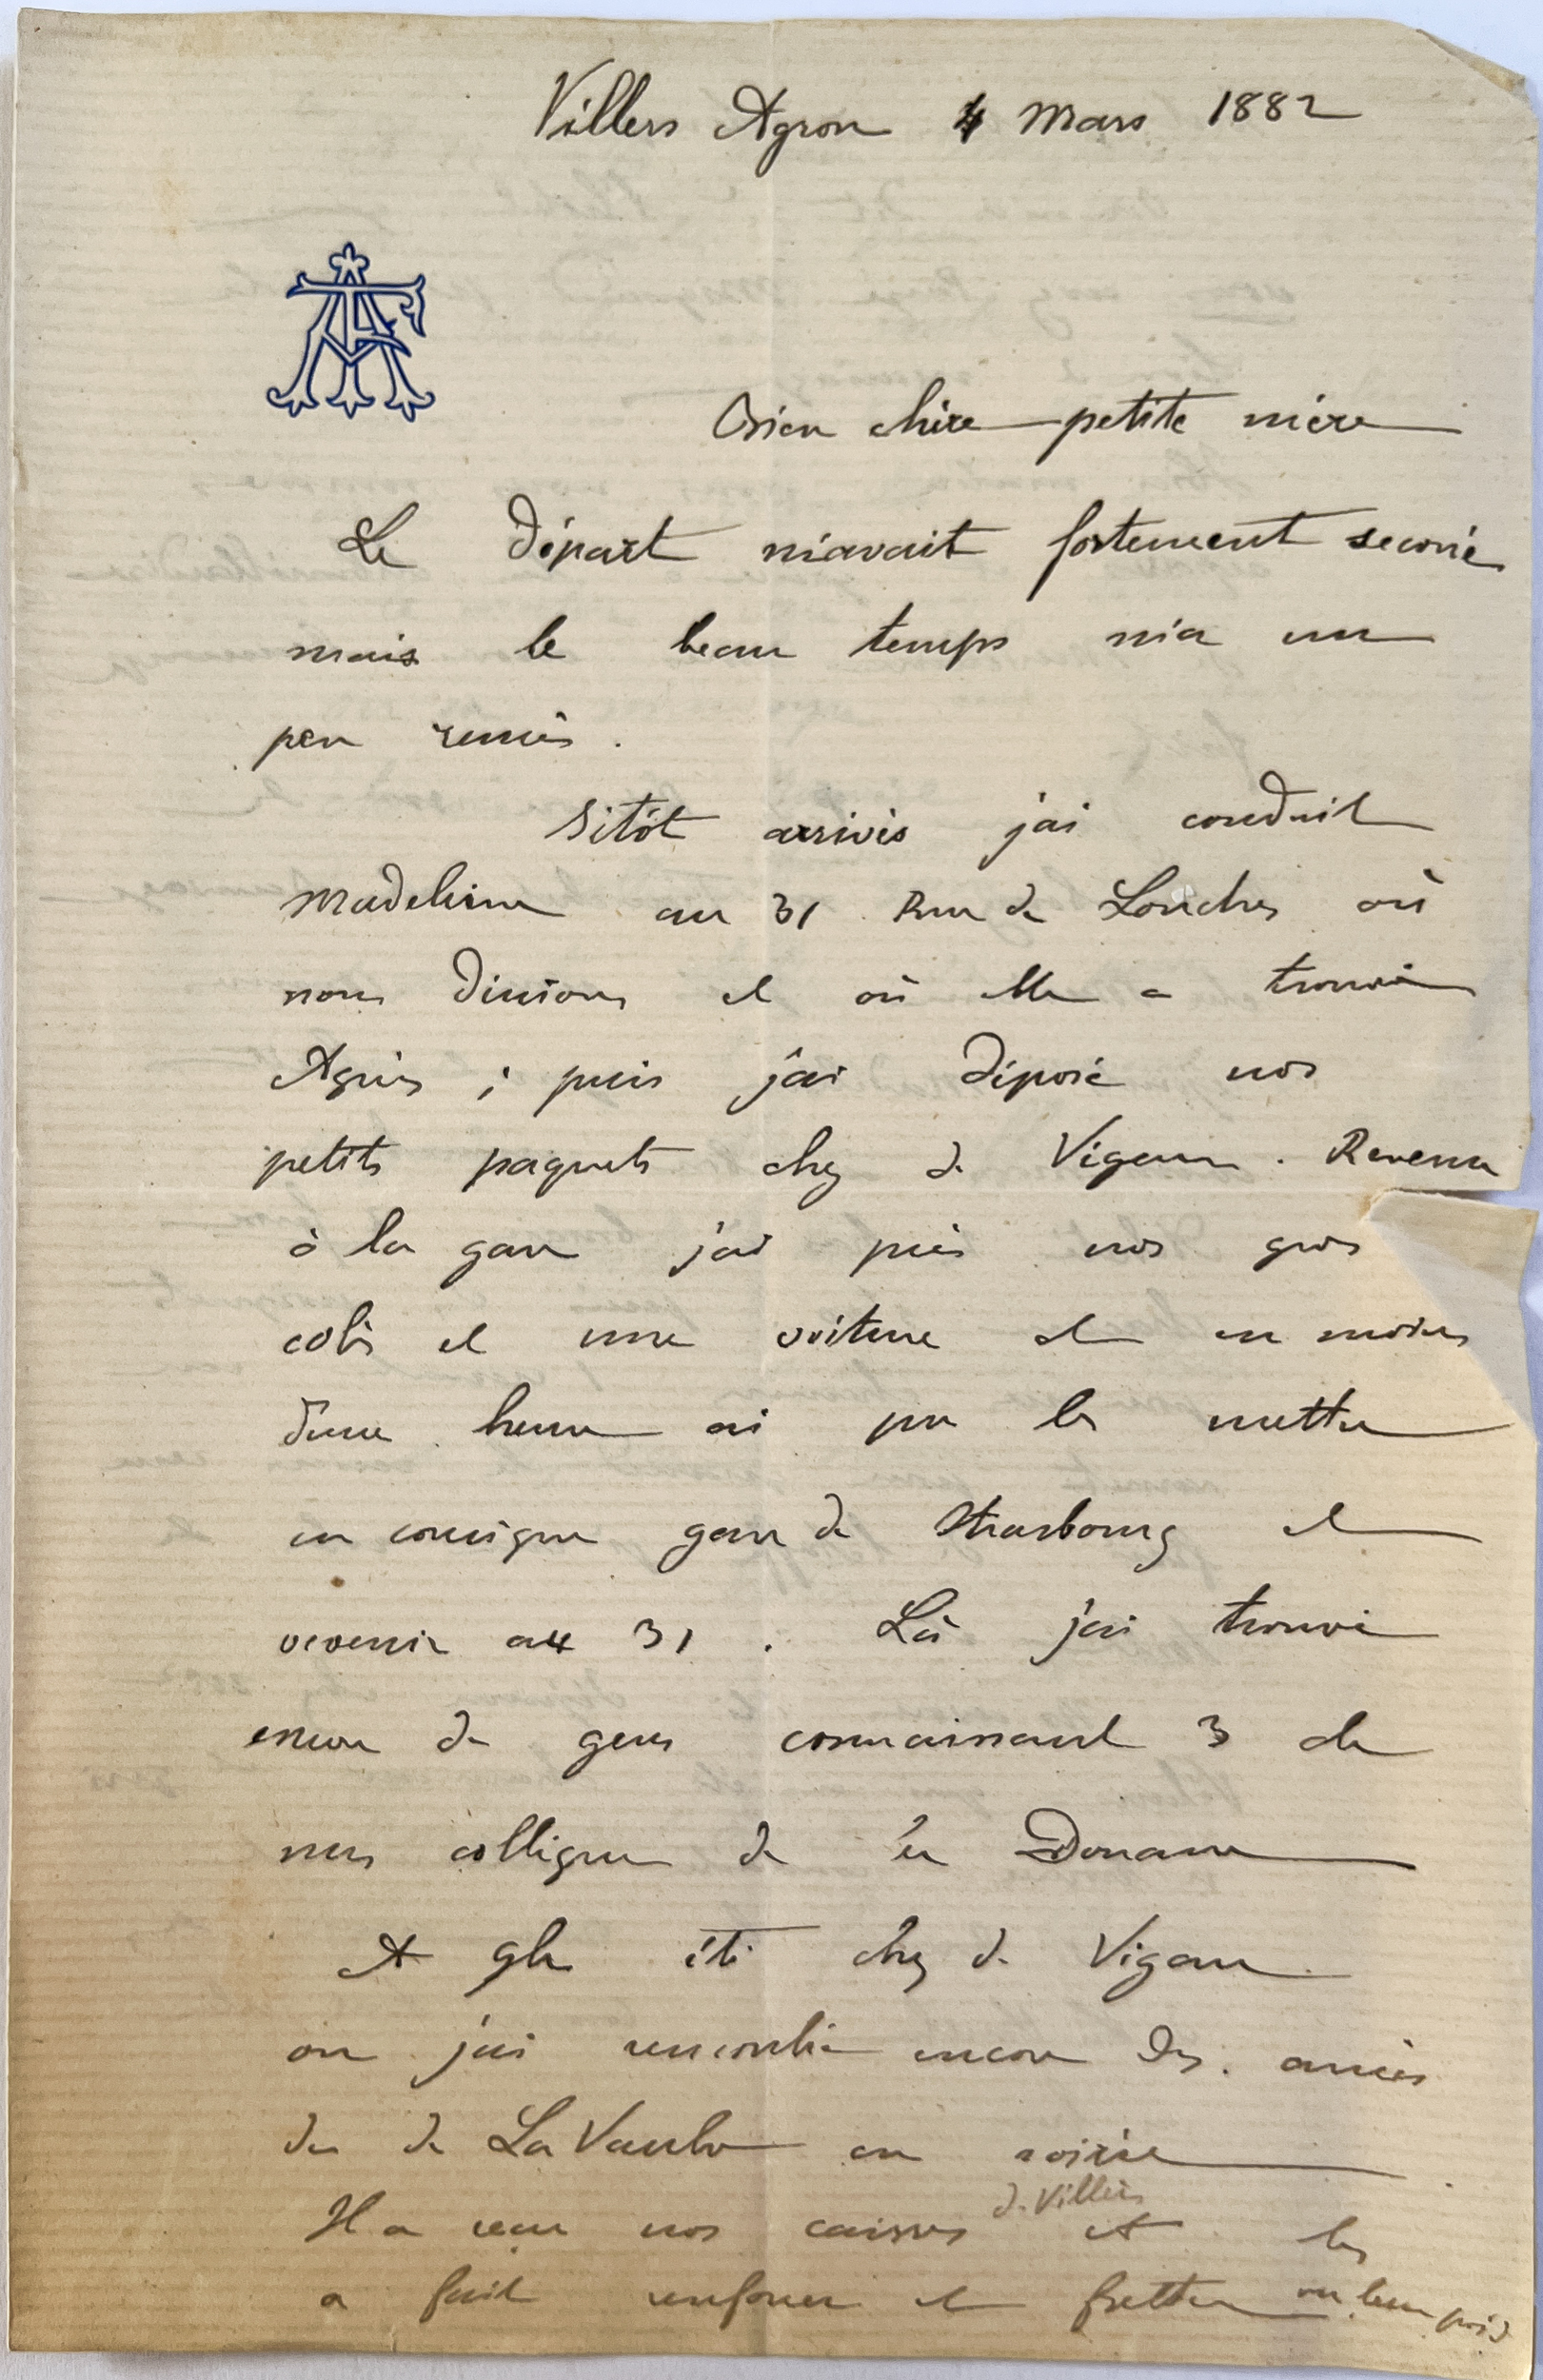 Villers Agron 4 Mars 1882
AF
Bien chère petite mère
Le départ m'avait fortement secoué
mais le beau temps m'a un
peu remis.
Sitôt arrivés j'ai conduit
Madeleine au 31 Rue de Londres où
nous dinions et où elle a trouvé
Agnès ; puis j'ai déposé nos
petits paquets chez de Vigan. Revenu
à la gare j'ai pris nos gros
colis et une voiture et en moins
d'une heure ai pu les mettre
en consigne gare de Strasbourg et
revenir au 31. Là j'ai trouvé
encore de gens connaissant 3 de
mes collègues de la Douane
A 9h été chez de Vigan
où j'ai rencontré encore des amies
des de La Vaulx en soirée
de Villers
Il a reçu nos caisses et les
a fait renforcer et fretter vu leur poids